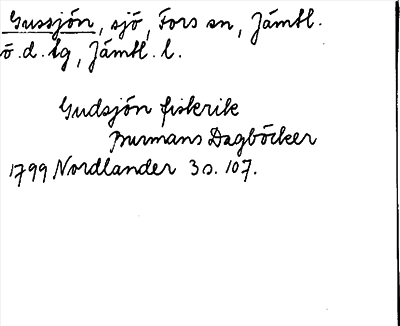 Gussjön, sjö, Fors sn, Jämtl.
ö. d. tg, Jämtl. l.
Gudsjön fiskrik
Burmans Dagböcker
1799 Nordlander 3 s. 107.